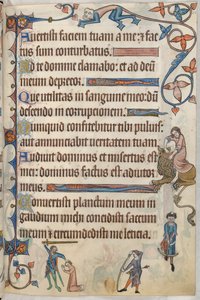 Avertisti faciem tuam a me: 7 fac
tus sum conturbatus.
Ad te domine clamabo: et ad deū
meum deprecor.
Que utilitas in sanguine meo: dū
descendo in corrupcionem.
Numquid confitebitur tibi pulvis:
aut annunciabit veritatem tuam.
Audivit dominus et misertus est
mei: dominus factus est adiutor
meus.
Convertisti planctum meum in
gaudium michi: concidisti saccum
meum et circumdedisti me leticia.